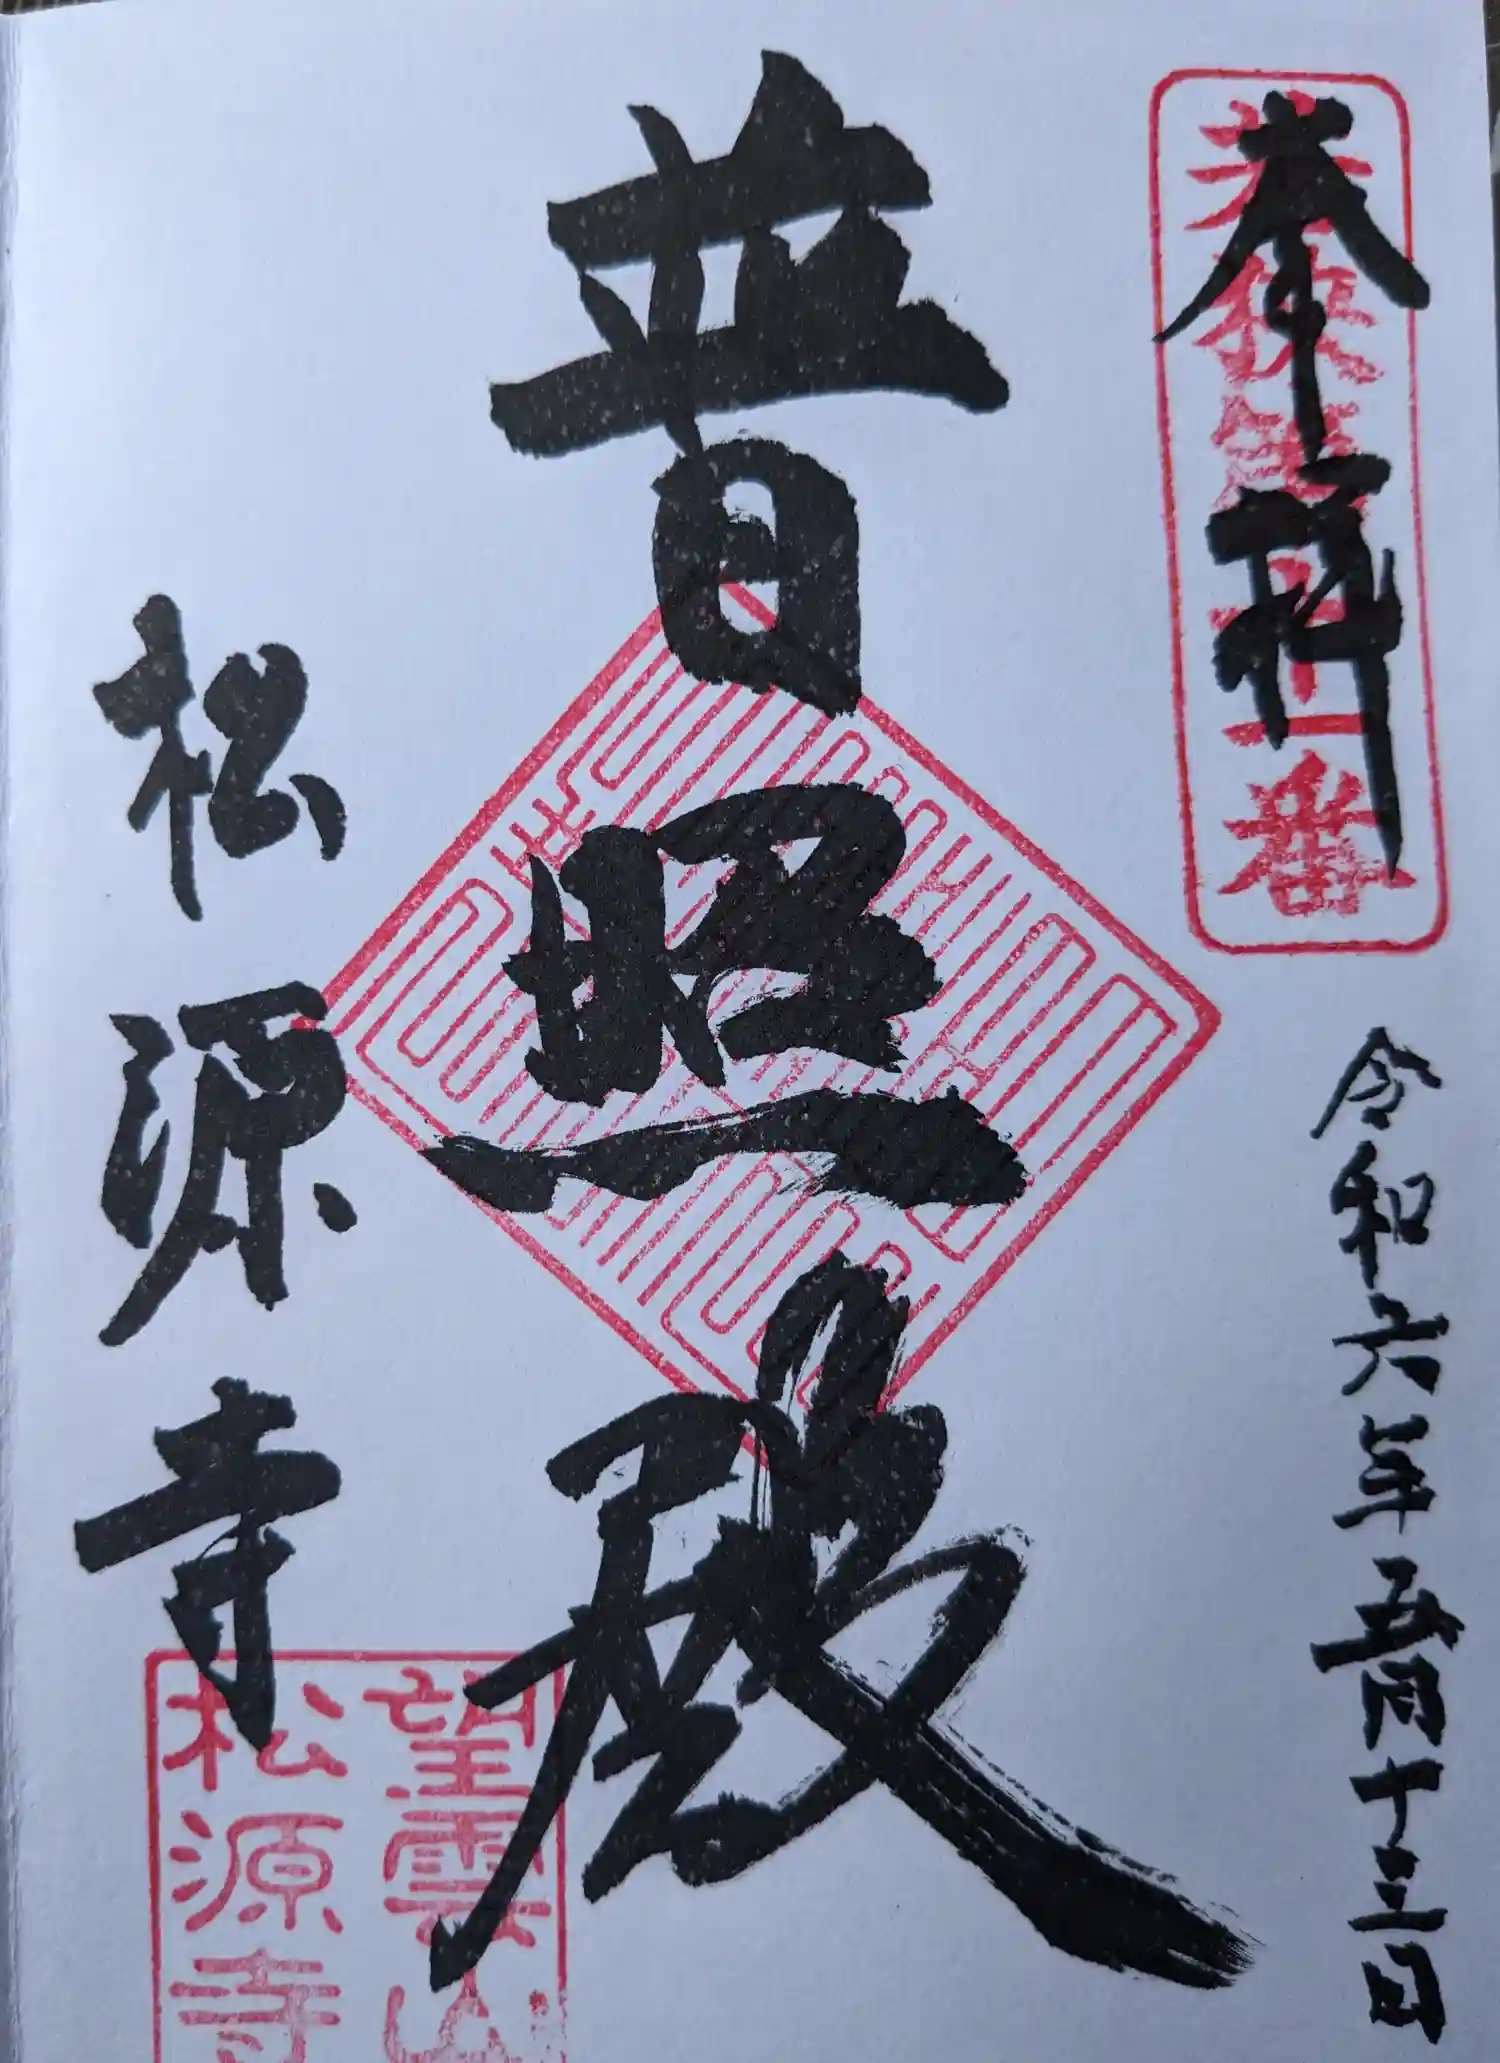 奉拝
十一番
令和六年五月十三日
普照殿
松源寺
望雲山
松源寺